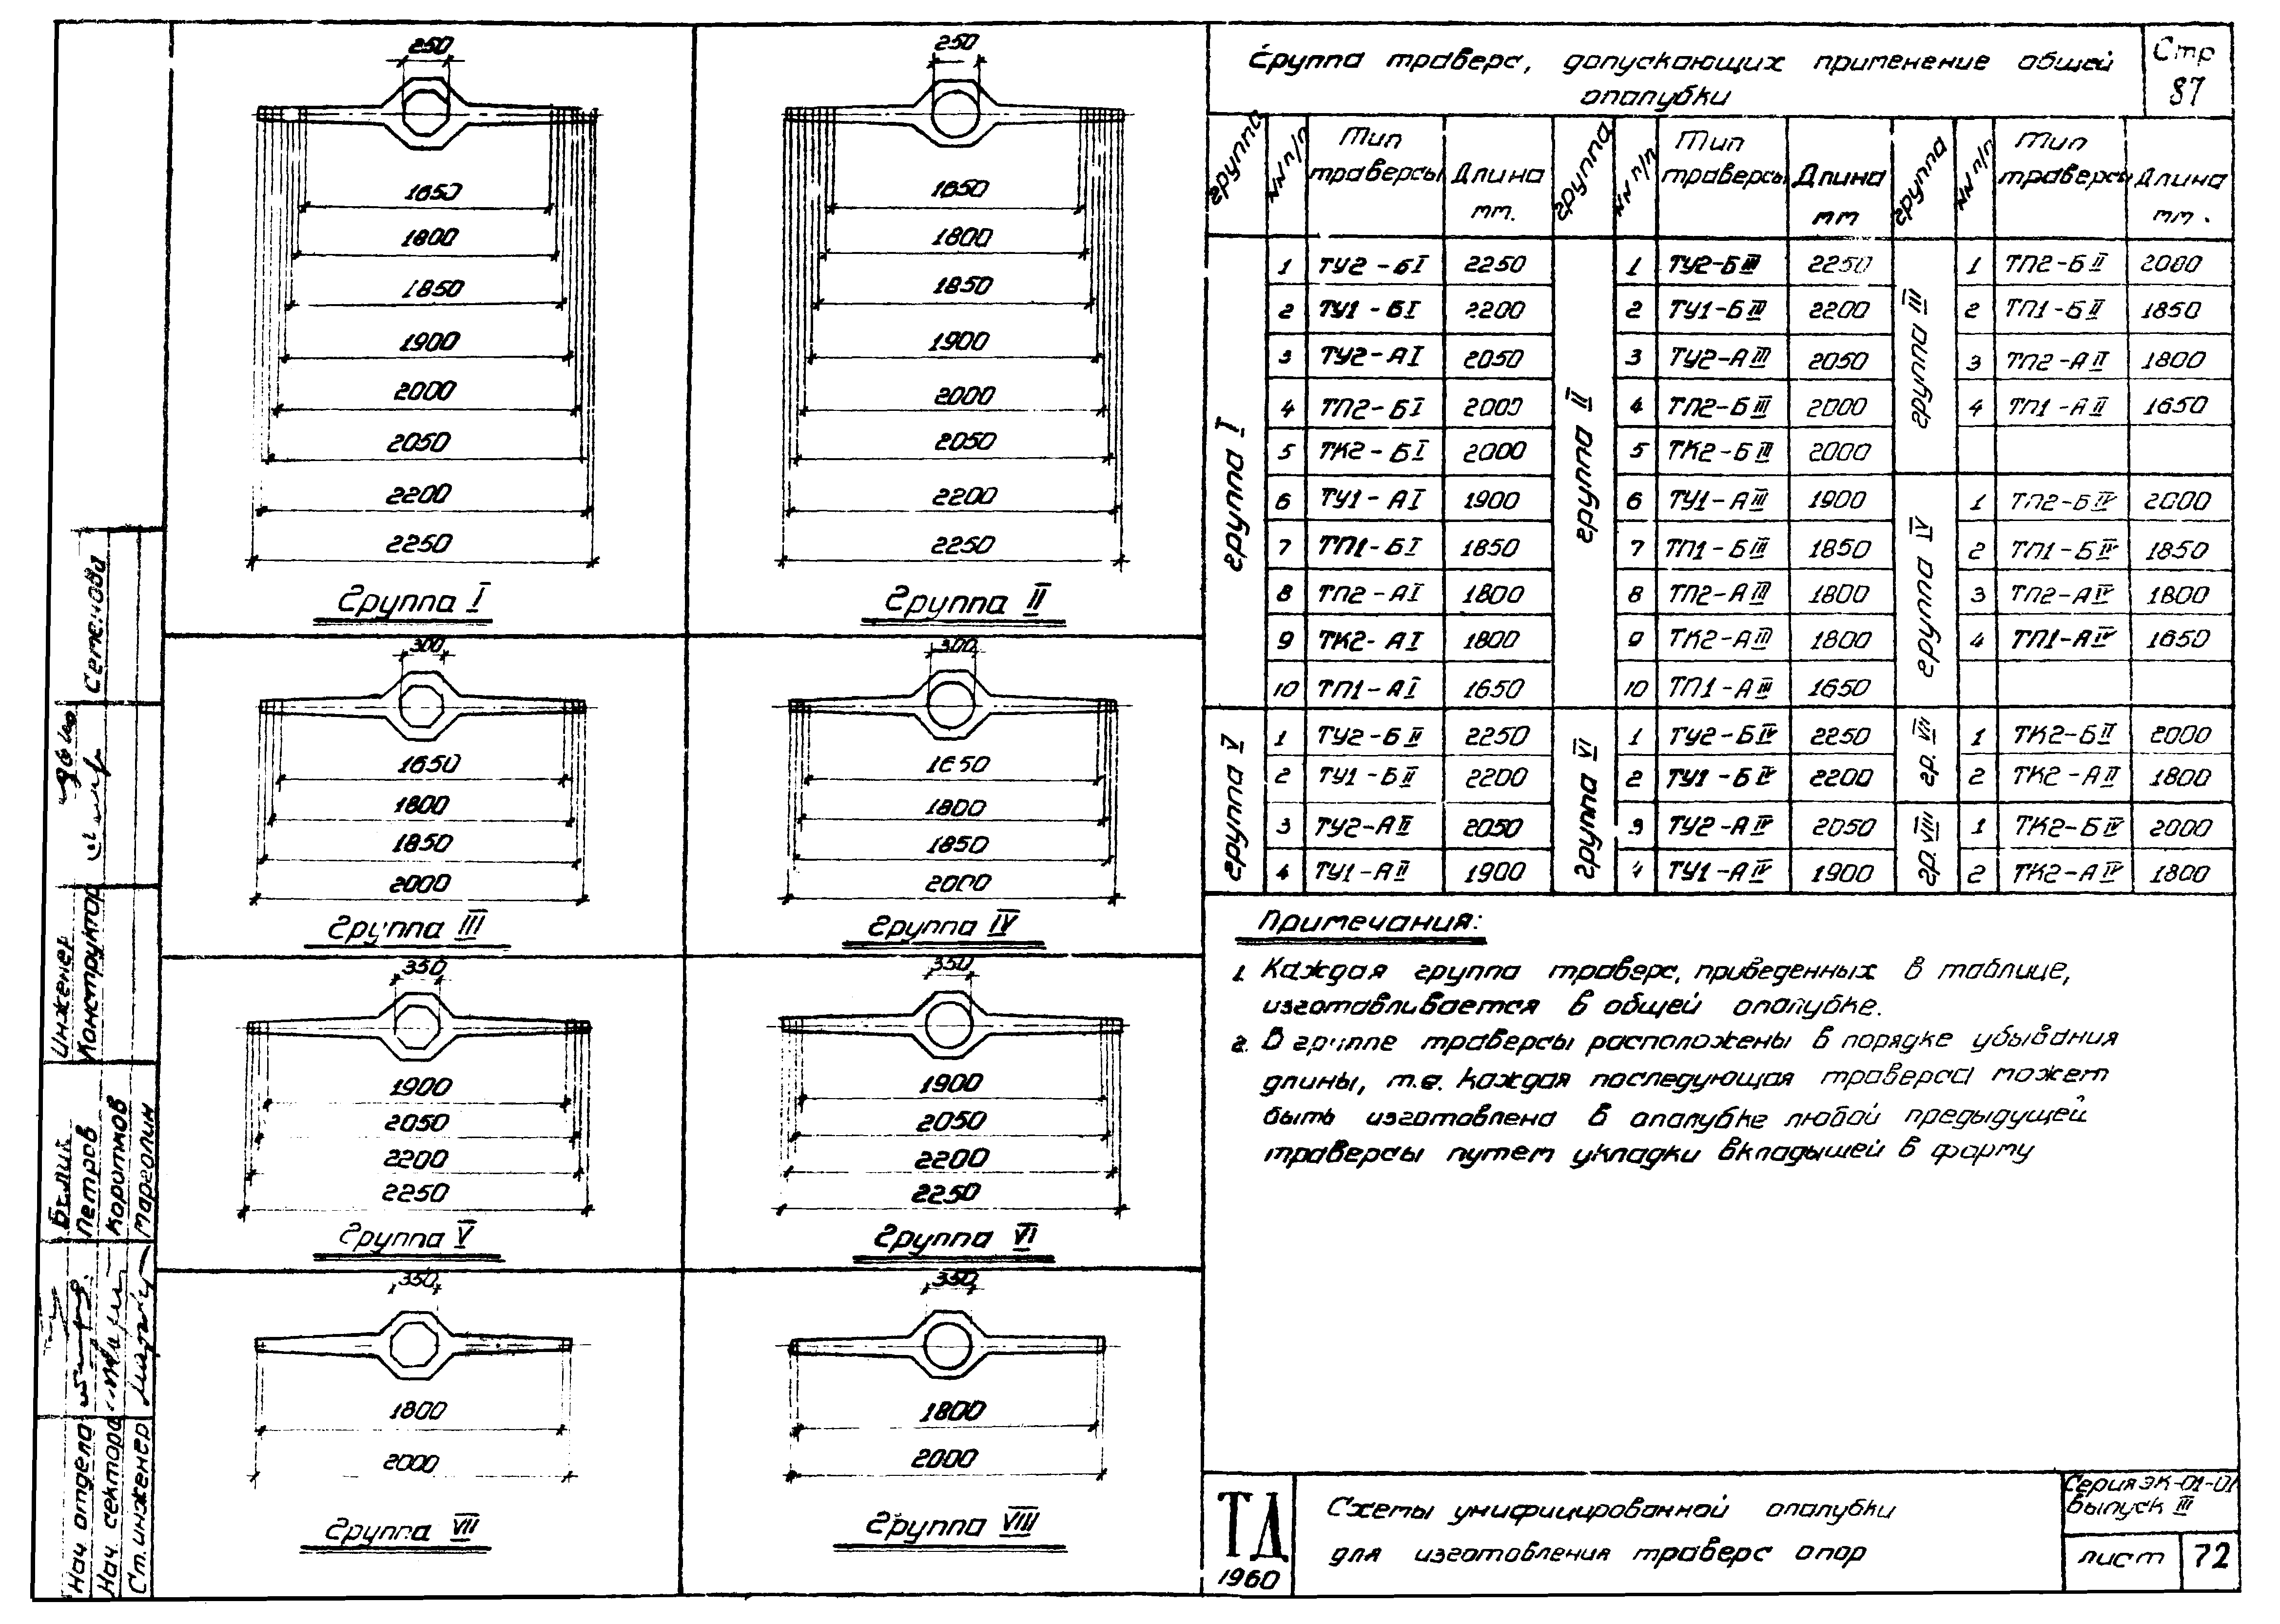 250
1650
1800
1850
1900
2000
2050
2200
2250
Группа I
250
1650
1800
1850
1900
2000
2050
2200
2250
Группа II
300
1650
1800
1850
2000
Группа III
300
1650
1800
1850
2000
Группа IV
350
1900
2050
2200
2250
Группа V
350
1900
2050
2200
2250
Группа VI
350
1800
2000
Группа VII
350
1800
2000
Группа VIII
Группа траверс, допускающих применение общей опалубки
Стр
87
группа | NN п/п | Тип траверсы | Длина мм. | группа | NN п/п | Тип траверсы | Длина мм | группа | NN п/п | Тип траверсы | Длина мм.
группа I
1 ТУ2-БI 2250
2 ТУ1-БI 2200
3 ТУ2-АI 2050
4 ТП2-БI 2000
5 ТК2-БI 2000
6 ТУ1-АI 1900
7 ТП1-БI 1850
8 ТП2-АI 1800
9 ТК2-АI 1800
10 ТП1-АI 1650
группа II
1 ТУ2-БIII 2250
2 ТУ1-БIII 2200
3 ТУ2-АIII 2050
4 ТП2-БIII 2000
5 ТК2-БIII 2000
6 ТУ1-АIII 1900
7 ТП1-БIII 1850
8 ТП2-АIII 1800
9 ТК2-АIII 1800
10 ТП1-АIII 1650
группа III
1 ТП2-БII 2000
2 ТП1-БII 1850
3 ТП2-АII 1800
4 ТП1-АII 1650
группа IV
1 ТП2-БIV 2000
2 ТП1-БIV 1850
3 ТП2-АIV 1800
4 ТП1-АIV 1650
группа V
1 ТУ2-БII 2250
2 ТУ1-БII 2200
3 ТУ2-АII 2050
4 ТУ1-АII 1900
группа VI
1 ТУ2-БIV 2250
2 ТУ1-БIV 2200
3 ТУ2-АIV 2050
4 ТУ1-АIV 1900
гр. VII
1 ТК2-БII 2000
2 ТК2-АII 1800
гр. VIII
1 ТК2-БIV 2000
2 ТК2-АIV 1800
Примечания:
1. Каждая группа траверс, приведенных в таблице,
изготавливается в общей опалубке.
2. В группе траверсы расположены в порядке убывания
длины, т.е. каждая последующая траверса может
быть изготовлена в опалубке любой предыдущей
траверсы путем укладки вкладышей в форму
ТД
1960
Схемы унифицированной опалубки
для изготовления траверс опор
Серия ЭК-01-01
Выпуск III
лист 72
Инженер
Конструктор
Семенова
Петров
Коротков
Марголин
Нач отдела
Нач. сектора
Ст. инженер